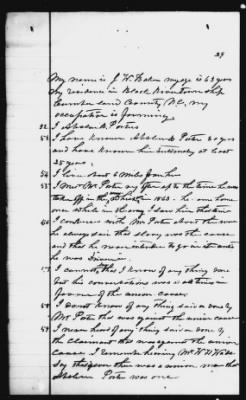 29
My name is J. W. Baker my age is 63 years
My residence in Black River township
Cumberland County, N.C., my
occupation is farming
52 I
53 I have known Absalom Porter 30 yrs
and have known him intimately at least
25 years.
54 I live about 6 miles from him
55 I met Mr. Porter very often up to the time he was
taken off in the in 1863 - he came home
once while in the I saw him that time
56 I conversed with Mr. Porter about the war
he always said this slavery was the cause
and that he never intended to go in it unless
he was
57 I cannot, that I know of any thing done
but his conversations was at all times in
favor of the union cause.
58 I don't know of any thing said or done by
Mr. Porter that was against the union cause
59 I never heard of any thing said or done by
the Claimant that was against the union
cause. I remember hearing Mr. W. W.
say that if there was a union man that
Absalom Porter was one